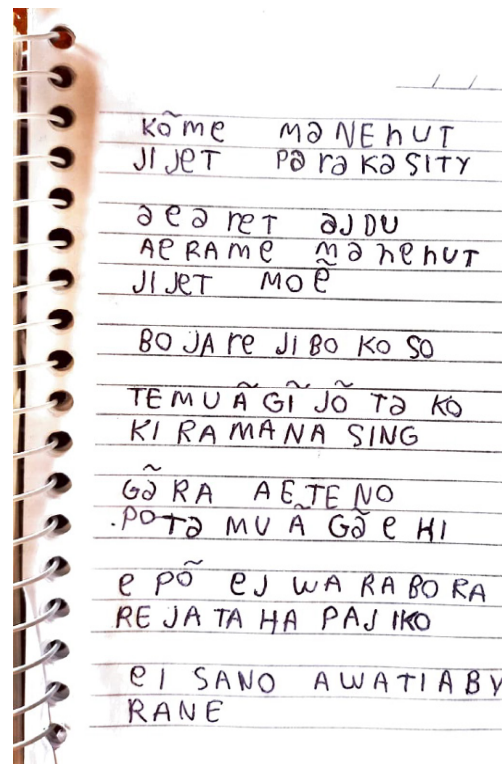 KÕme mə NEhUT
JIJeT Pə rə Kə SITY
ə e ə reT əJ DU
Ae RAme mə nehUT
JIJeT MOẽ
BO JA re JI BO KO SO
TE MU Ã GĨ JÕ Tə KO
KI RA MANA SING
Gə̃ RA AE TE NO
.PO Tə MU Ã Gə̃ e HI
e PÕ eJ WA RA BO RA
RE JA TA HA PAJ IKO
eI SANO AWATIABY
RANE